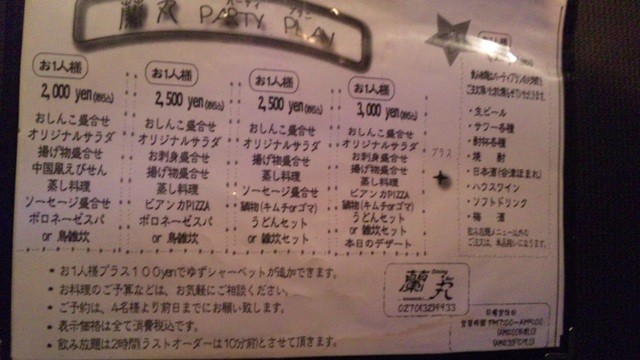 蘭丸 PARTY PLAN
お1人様
2,000 yen(税込)
おしんこ盛合せ
オリジナルサラダ
揚げ物盛合せ
中国風えびせん
蒸し料理
ソーセージ盛合せ
ボロネーゼスパ
or 鳥雑炊
お1人様
2,500 yen(税込)
おしんこ盛合せ
オリジナルサラダ
お刺身盛合せ
揚げ物盛合せ
蒸し料理
ビアンカPIZZA
ボロネーゼスパ
or 鳥雑炊
お1人様
2,500 yen(税込)
おしんこ盛合せ
オリジナルサラダ
揚げ物盛合せ
蒸し料理
ソーセージ盛合せ
鍋物(キムチorゴマ)
うどんセット
or 雑炊セット
お1人様
3,000 yen(税込)
おしんこ盛合せ
オリジナルサラダ
お刺身盛合せ
揚げ物盛合せ
蒸し料理
ビアンカPIZZA
鍋物(キムチorゴマ)
うどんセット
or 雑炊セット
本日のデザート
プラス
お1人様
・生ビール
・サワー各種
・酎杯各種
・焼 酎
・日本酒(会津ほまれ)
・ハウスワイン
・ソフトドリンク
・梅 酒
飲み放題メニュー以外の
ご注文は、単品扱いになります。
・お1人様プラス100yenでゆずシャーベットが追加できます。
・お料理のご予算などは、お気軽にご相談ください。
・ご予約は、4名様より前日までにお願い致します。
・表示価格は全て消費税込です。
・飲み放題は2時間(ラストオーダーは10分前)とさせて頂きます。
Dining
蘭丸
日曜定休日
営業時間 PM7:00~AM4:00